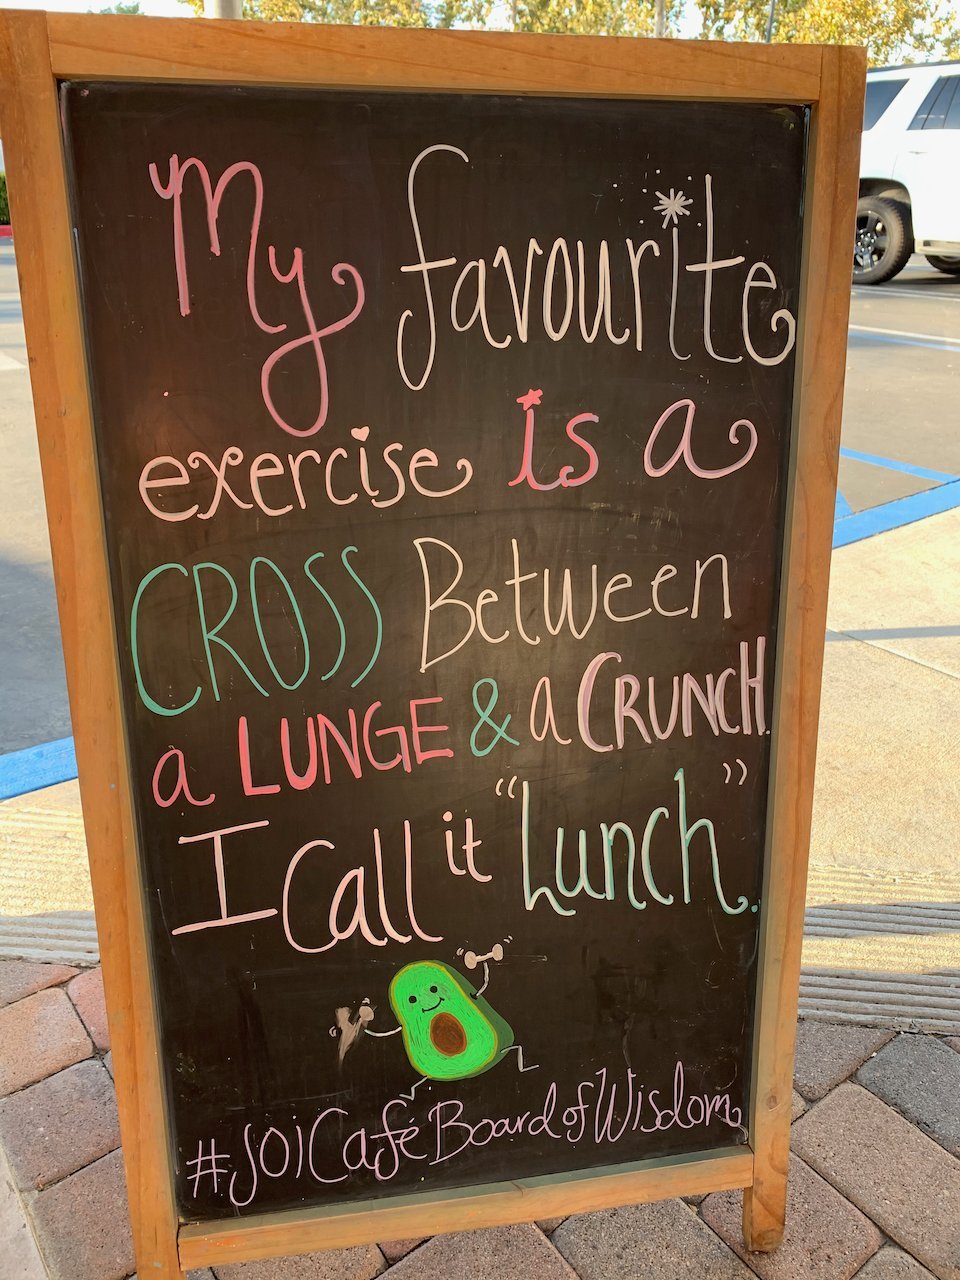 My favourite
exercise is a
CROSS Between
a LUNGE & a CRUNCH.
I Call it "Lunch".
#JOiCaféBoardofWisdom